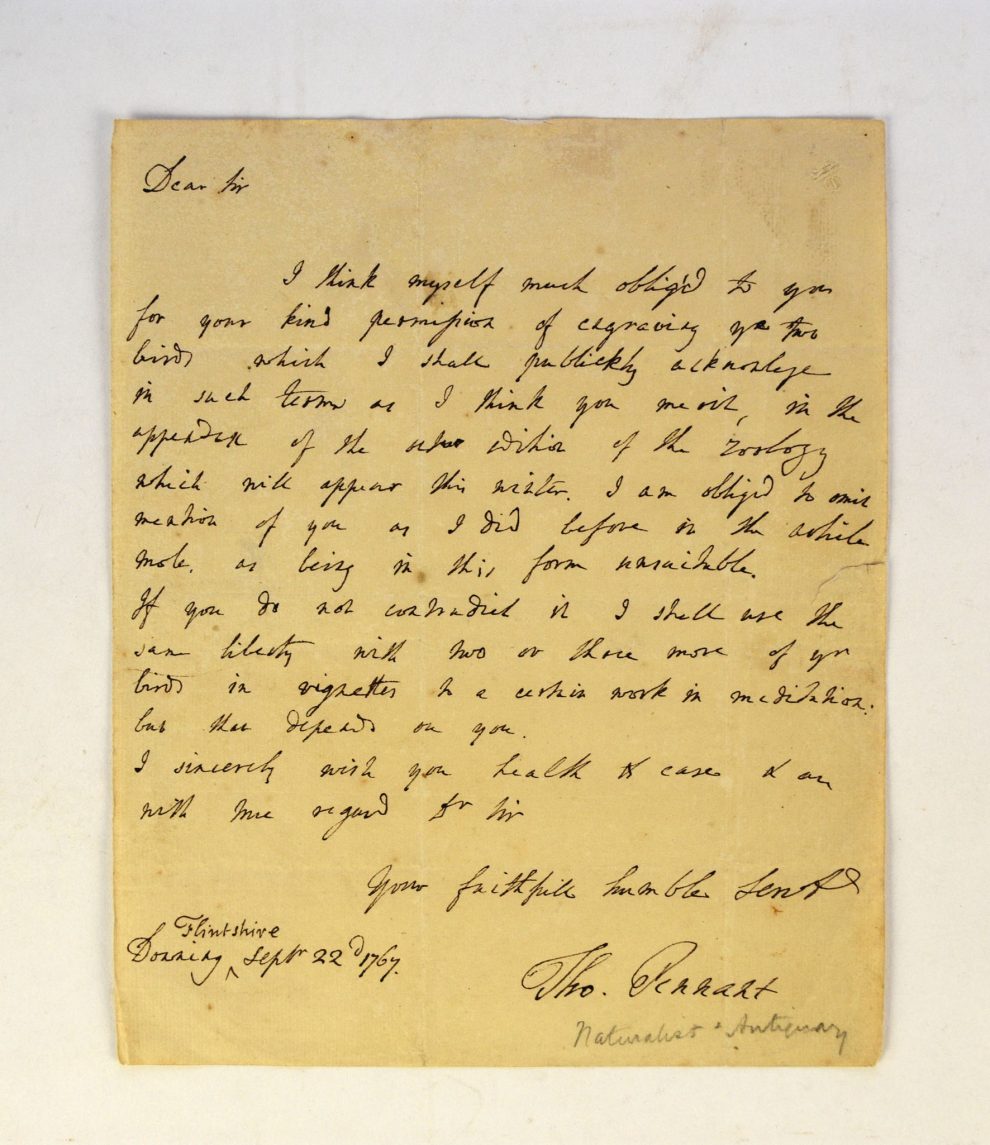 Dear Sir
I think myself much oblig'd to you
for your kind permission of engraving yr two
birds which I shall publickly acknowlege
in such terms as I think you merit, in the
appendix of the octvo edition of the Zoology
which will appear this winter. I am oblig'd to omit
mention of you as I did before in the article
mole, as being in this form unsuitable.
If you do not contradict it I shall use the
same liberty with two or three more of yr
birds in vignettes to a certain work in meditation:
but that depends on you.
I sincerely wish you health & ease & am
with true regard Dr Sir
Your faithfull humble Servt
Flintshire
Downing ^ Septr 22d 1767.
Tho. Pennant
Naturalist & Antiquary